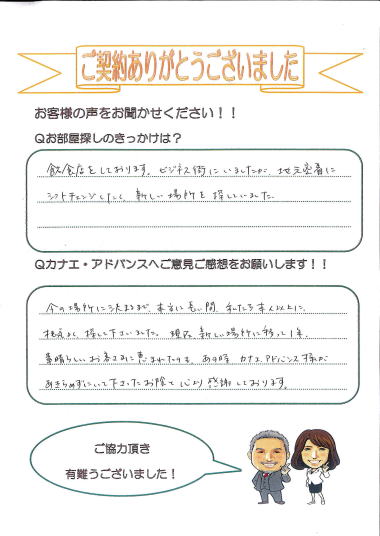 ご契約ありがとうございました
お客様の声をお聞かせください！！
Qお部屋探しのきっかけは？
飲食店をしております。ビジネス街にいましたが、地元密着に
シフトチェンジしたく、新しい場所を探していました。
Qカナエ・アドバンスへご意見ご感想をお願いします！！
今の場所に決まるまで、本当に長い間、私たち本人以上に、
根気よく、探して下さいました。現在、新しい場所に移って1年、
素晴らしいお客さまに恵まれたのも、あの時 カナエアドバンス様が
あきらめずにいて下さったお陰で 心より感謝しております。
ご協力頂き
有難うございました！